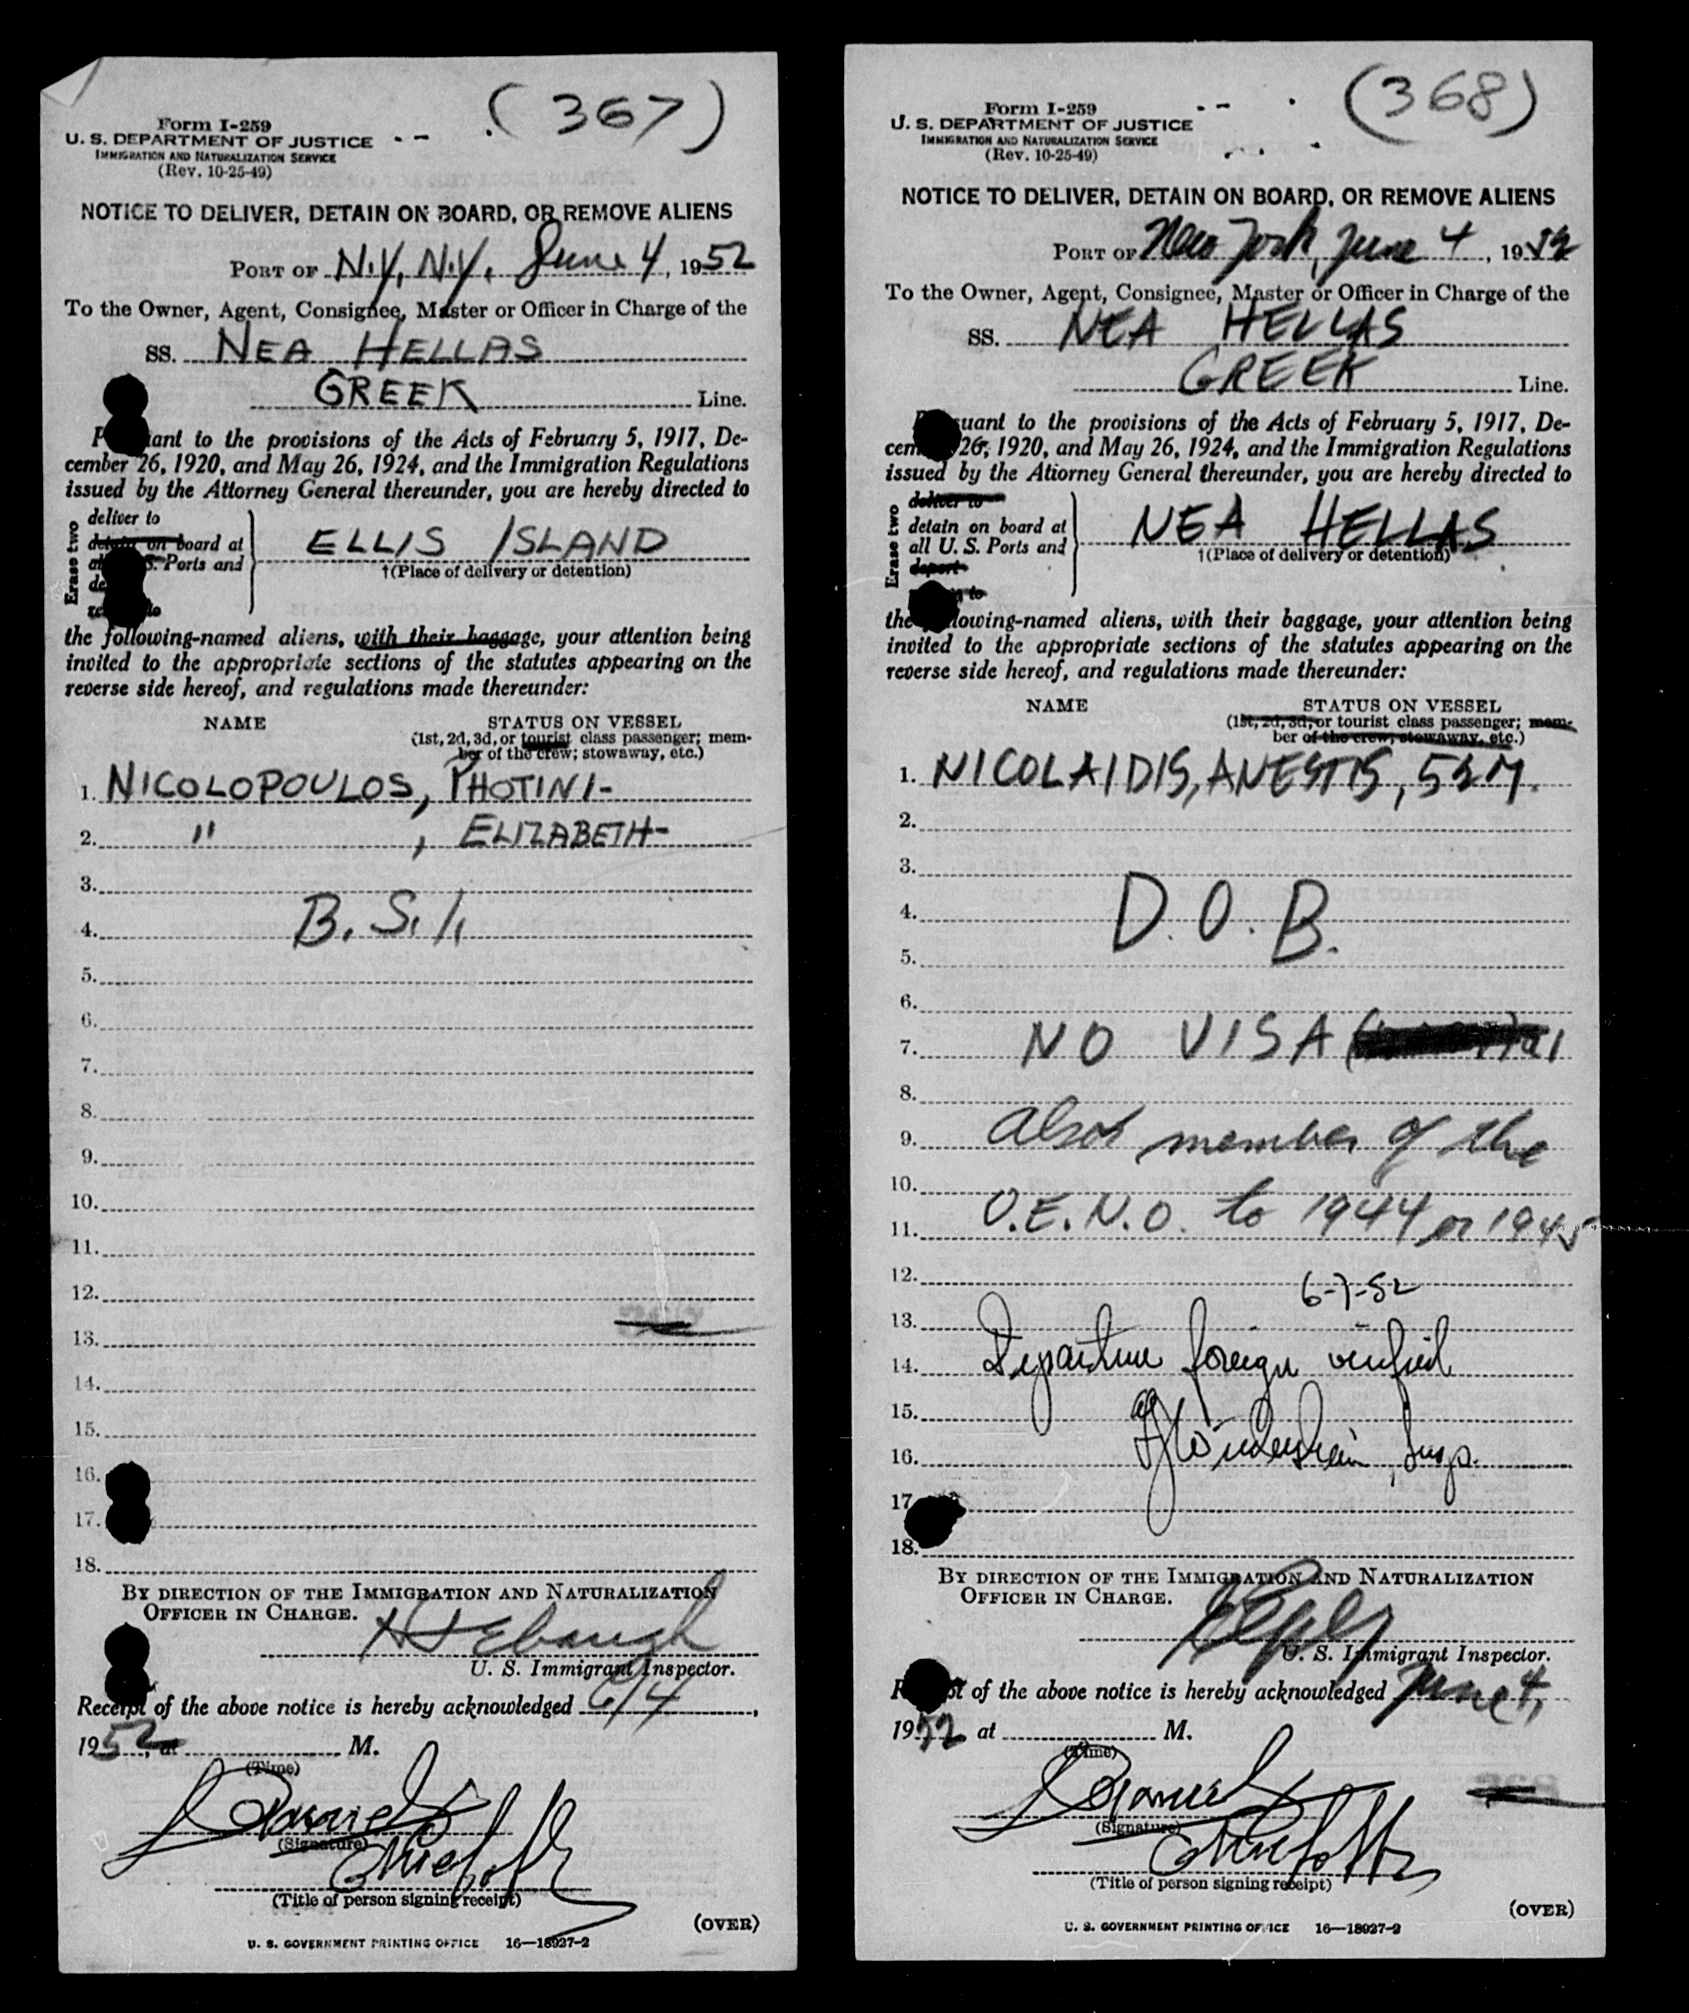 (367)
Form I-259
U. S. DEPARTMENT OF JUSTICE
IMMIGRATION AND NATURALIZATION SERVICE
(Rev. 10-25-49)
NOTICE TO DELIVER, DETAIN ON BOARD, OR REMOVE ALIENS
PORT OF N.Y, N.Y, June 4, 1952
To the Owner, Agent, Consignee, Master or Officer in Charge of the
SS. NEA HELLAS
GREEK Line.
to the provisions of the Acts of February 5, 1917, De-
cember 26, 1920, and May 26, 1924, and the Immigration Regulations
issued by the Attorney General thereunder, you are hereby directed to
Erase two
deliver to
detain on board at
S. Ports and
ELLIS ISLAND
†(Place of delivery or detention)
the following-named aliens, with their baggage, your attention being
invited to the appropriate sections of the statutes appearing on the
reverse side hereof, and regulations made thereunder:
NAME STATUS ON VESSEL
(1st, 2d, 3d, or tourist class passenger; mem-
ber of the crew; stowaway, etc.)
1. NICOLOPOULOS, PHOTINI-
2. " , ELIZABETH-
3.
4. B.S.I.
5.
6.
7.
8.
9.
10.
11.
12.
13.
14.
15.
16.
17.
18.
BY DIRECTION OF THE IMMIGRATION AND NATURALIZATION
OFFICER IN CHARGE.
U. S. Immigrant Inspector.
Receipt of the above notice is hereby acknowledged 6/4,
1952, at M.
(Time)
(Signature)
(Title of person signing receipt)
(OVER)
U. S. GOVERNMENT PRINTING OFFICE 16—18927-2
(368)
Form I-259
U. S. DEPARTMENT OF JUSTICE
IMMIGRATION AND NATURALIZATION SERVICE
(Rev. 10-25-49)
NOTICE TO DELIVER, DETAIN ON BOARD, OR REMOVE ALIENS
PORT OF New York, June 4, 1952
To the Owner, Agent, Consignee, Master or Officer in Charge of the
SS. NEA HELLAS
GREEK Line.
to the provisions of the Acts of February 5, 1917, De-
26, 1920, and May 26, 1924, and the Immigration Regulations
issued by the Attorney General thereunder, you are hereby directed to
Erase two
deliver to
detain on board at
all U. S. Ports and
deport
NEA HELLAS
†(Place of delivery or detention)
the following-named aliens, with their baggage, your attention being
invited to the appropriate sections of the statutes appearing on the
reverse side hereof, and regulations made thereunder:
NAME STATUS ON VESSEL
(1st, 2d, 3d, or tourist class passenger; mem-
ber of the crew; stowaway, etc.)
1. NICOLAIDIS, ANESTIS, 52 M.
2.
3.
4. D.O.B.
5.
6.
7. NO VISA
8.
9. also member of the
10.
11. O.E.N.O. to 1944 or 1945
12. 6-7-52
13.
14. Departure foreign verified
15.
16. Insp.
17.
18.
BY DIRECTION OF THE IMMIGRATION AND NATURALIZATION
OFFICER IN CHARGE.
U. S. Immigrant Inspector.
of the above notice is hereby acknowledged June 4,
1952 at M.
(Time)
(Signature)
(Title of person signing receipt)
(OVER)
U. S. GOVERNMENT PRINTING OFFICE 16—18927-2